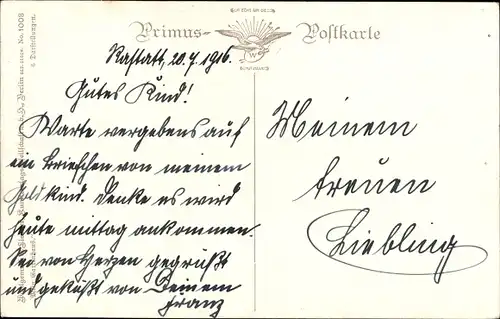 Primus-Postkarte
Rastatt, 20.7.1916.
Gutes Kind!
Warte vergebens auf
ein Briefchen von meinem
Goldkind. Denke es wird
heute mittag ankommen.
Sei von Herzen gegrüßt
und geküßt von Deinem
Franz
Meinem
treuen
Liebling
No. 1008
6 Darstellungen.